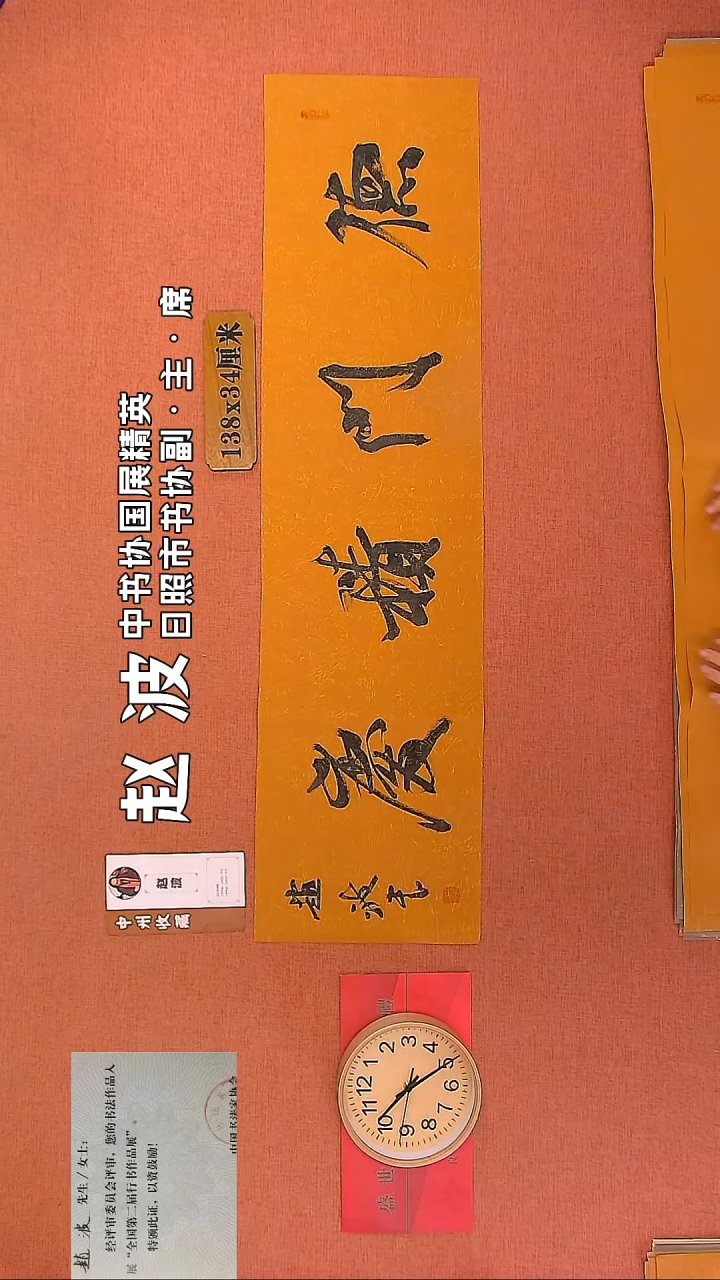 赵波
中书协国展精英
日照市书协副·主·席
138x34厘米
赵波
中州收藏
德門積慶
趙波书
赵波 先生/女士:
经评审委员会评审,您的书法作品入
展“全国第二届行书作品展”。
特颁此证,以资鼓励!
中国书法家协会
盛世
12
1
2
3
4
5
6
7
8
9
10
11